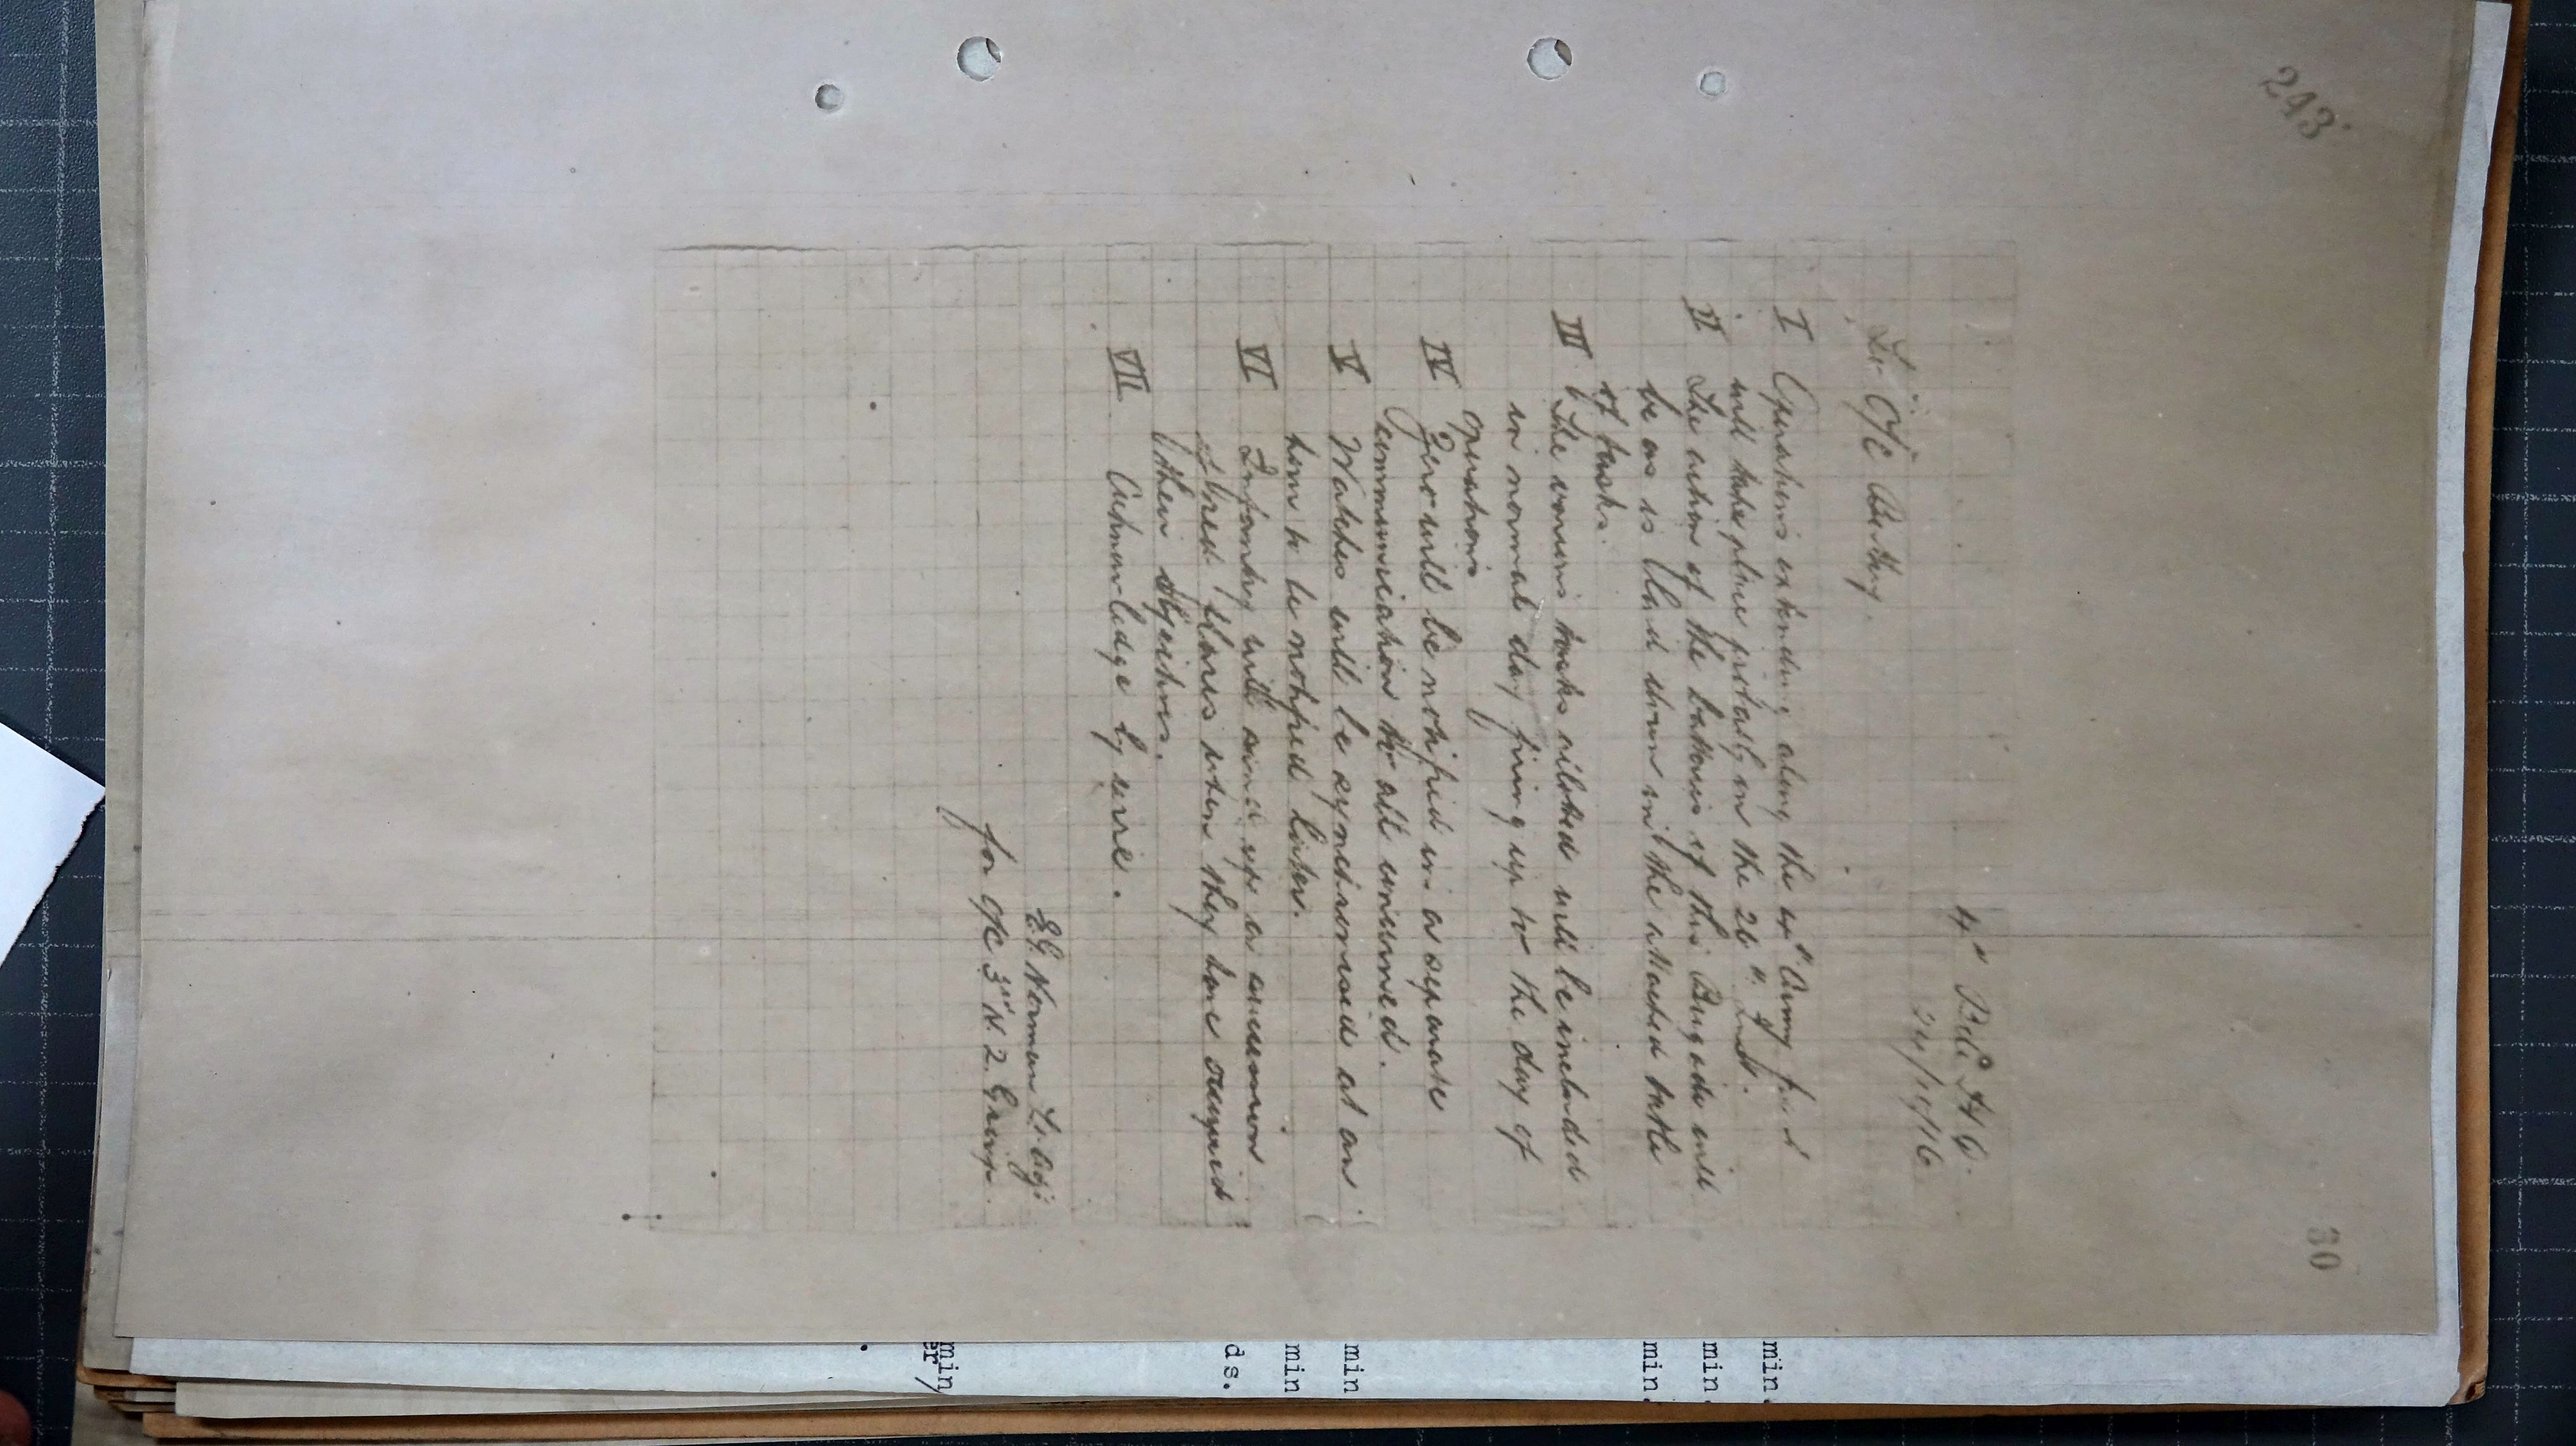 243.
30
4" Bde H.Q.
24/10/16
To O/C Battery.
I Operations extending along the 4" Army front
will take place probably on the 26" Inst.
II The action of the batteries of this Brigade will
be as is laid down in the attached table
of tasks.
III The various tasks allotted will be included
in normal day firing up to the day of
operations
IV Zero will be notified in a separate
communication to all concerned.
V Watches will be synchronised at an
hour to be notified later.
VI Infantry will send up a succession
of flares when they have occupied
their objectives.
VII Acknowledge by wire.
E.G. Norman Lt. Adjt
for O/C 3rd N.Z. Group.
min.
min.
min.
min
min
ds.
min
er/